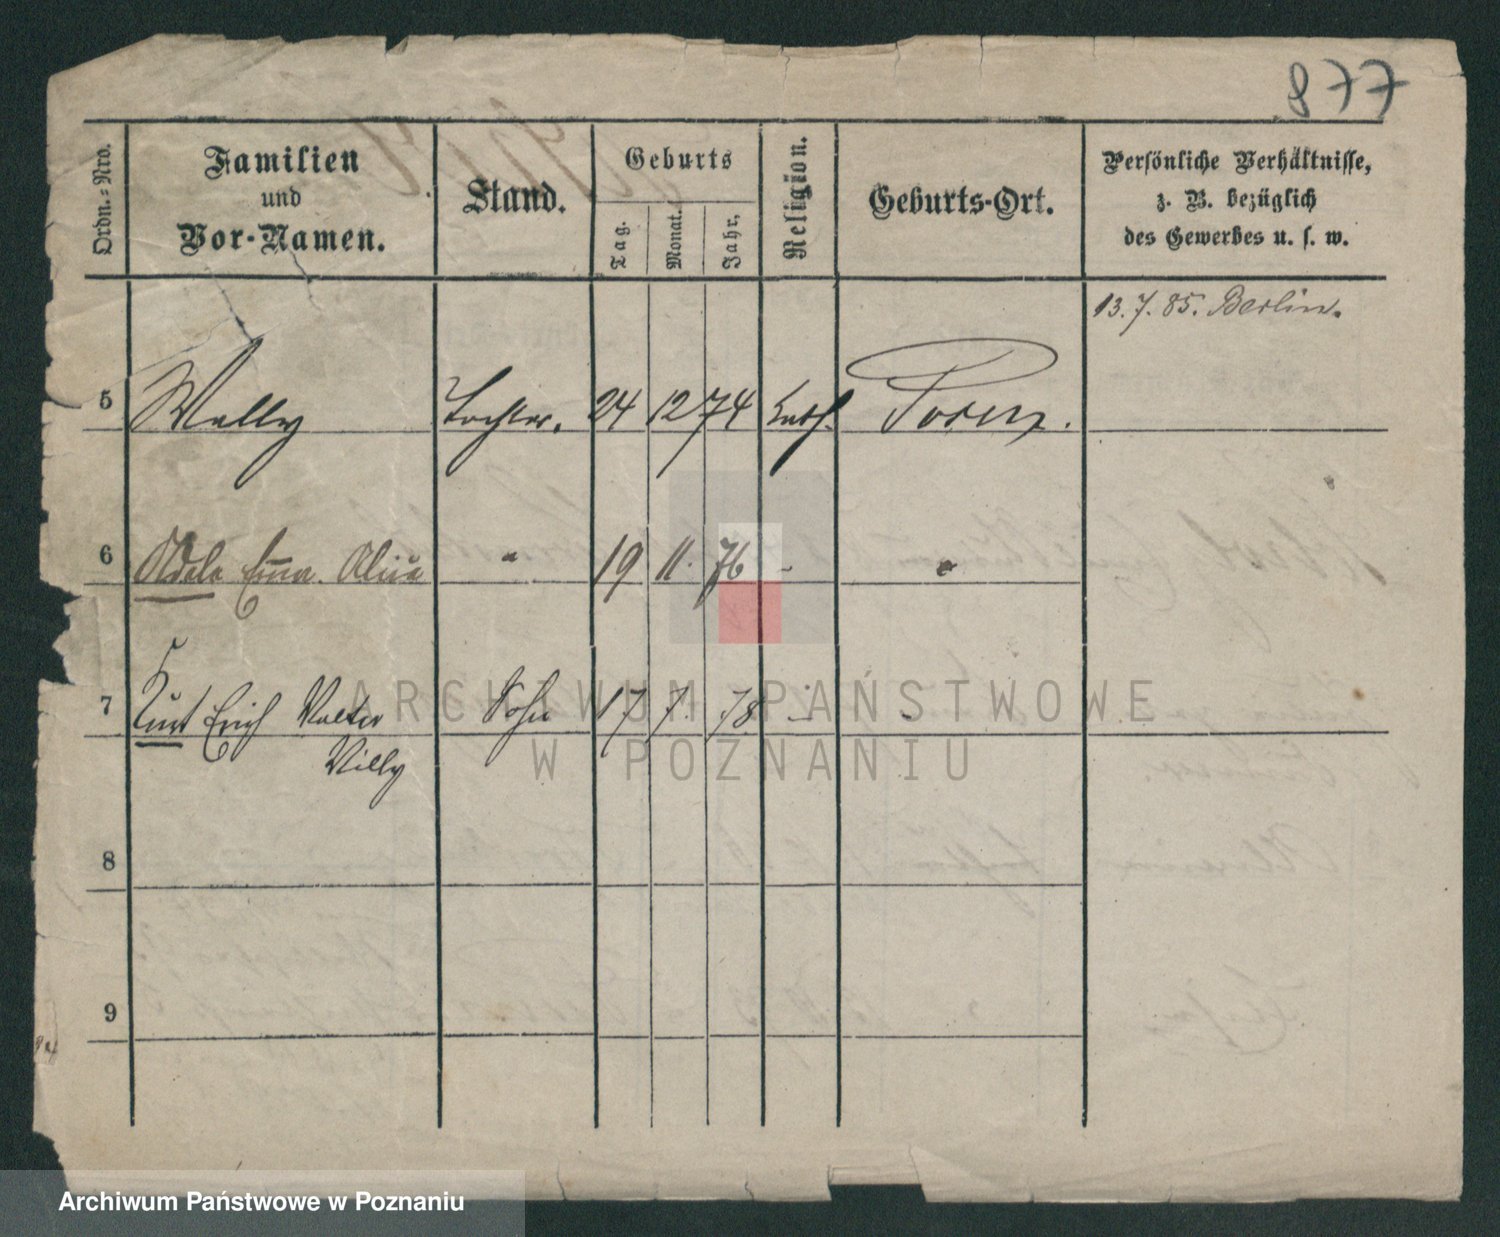 877
Ordn.=Nro.
Familien
und
Vor-Namen.
Stand.
Geburts
Tag.
Monat.
Jahr.
Religion.
Geburts-Ort.
Persönliche Verhältnisse,
z. B. bezüglich
des Gewerbes u. s. w.
13. 7. 85. Berlin.
5 Wally Tochter. 24 12 74 kath. Posen.
6 Adele Emma Alice " 19 11. 76 - "
7 Kurt Erich Walter Sohn 17 7. 78. - -
Willy
8
9
ARCHIWUM PAŃSTWOWE
W POZNANIU
Archiwum Państwowe w Poznaniu